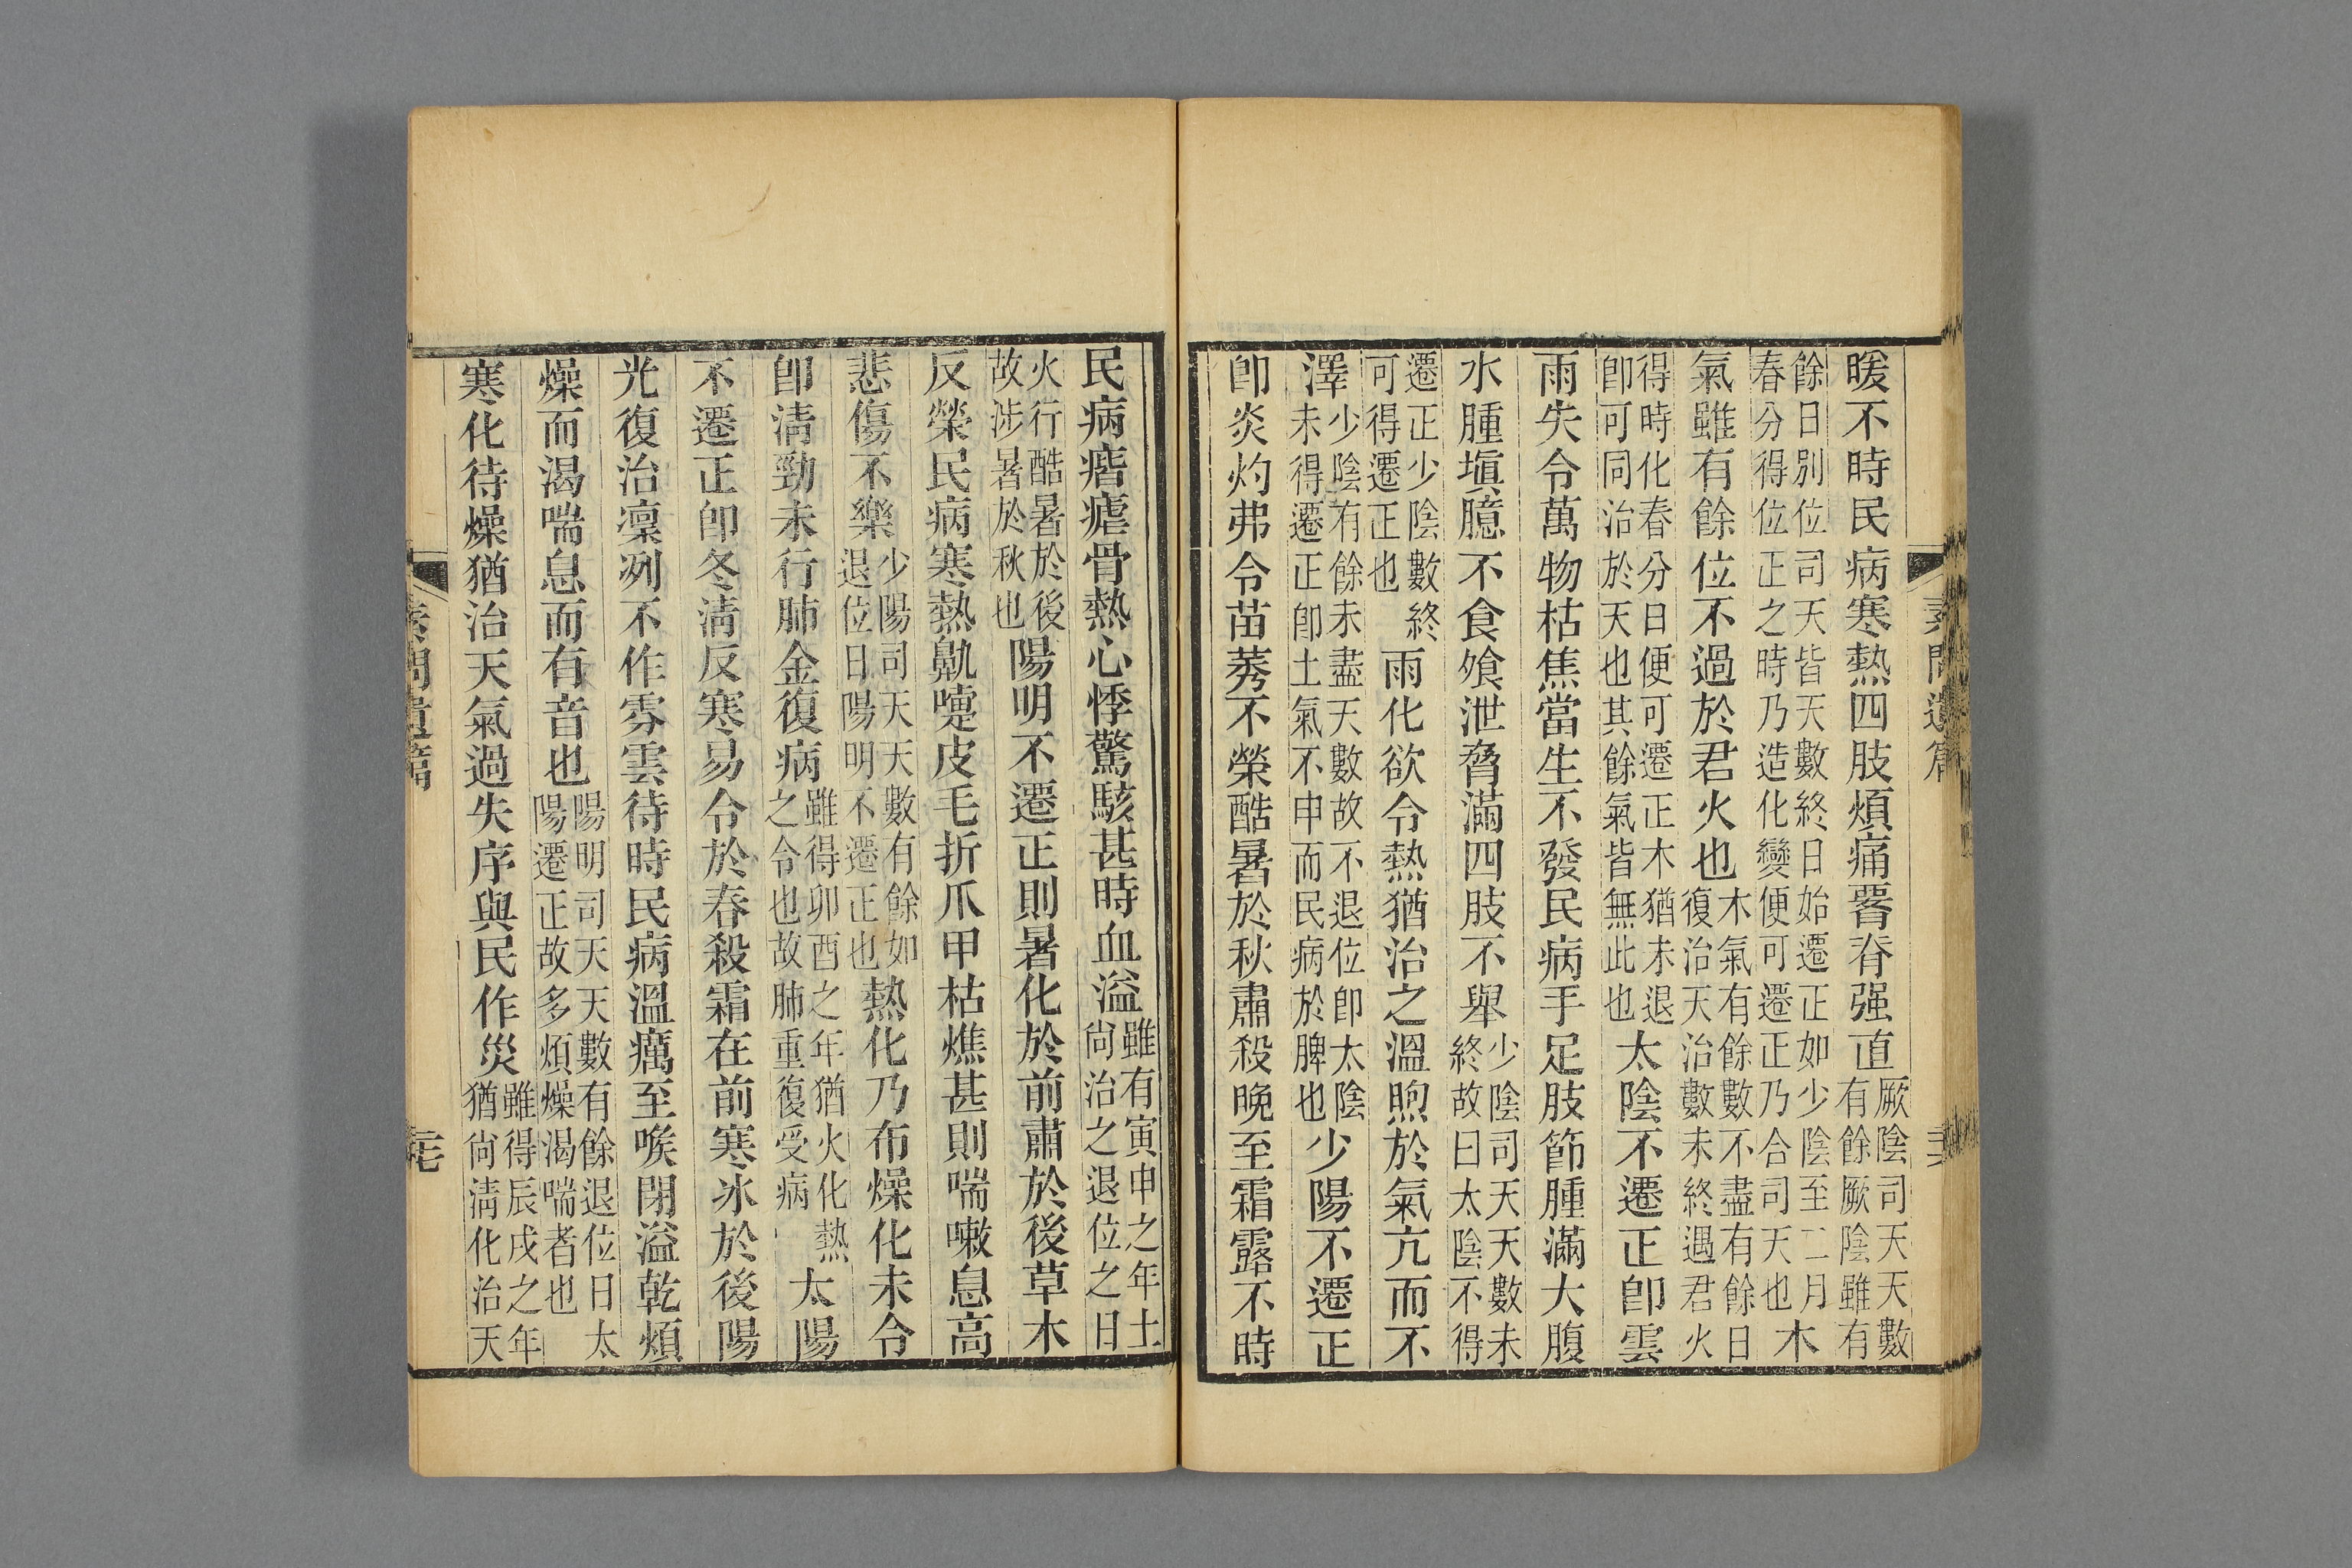 素問遺篇
暖不時民病寒熱四肢煩痛腰脊强直厥陰司天天數有餘厥陰雖有
餘日別位司天皆天數終日始遷正如少陰至二月春分得位正之時乃造化變便可遷正乃合司天也木
氣雖有餘位不過於君火也木氣有餘數不盡有餘日復治天治數未終遇君火
得時化春分日便可遷正木猶未退卽可同治於天也其餘氣皆無此也太陰不遷正卽雲
雨失令萬物枯焦當生不發民病手足肢節腫滿大腹
水腫塡臆不食飧泄脅滿四肢不舉少陰司天天數未終故曰太陰不得
遷正少陰數終可得遷正也雨化欲令熱猶治之溫煦於氣亢而不
澤少陰有餘未盡天數故不退位卽太陰未得遷正卽土氣不申而民病於脾也少陽不遷正
卽炎灼弗令苗莠不榮酷暑於秋肅殺晚至霜露不時
民病痎瘧骨熱心悸驚駭甚時血溢雖有寅申之年土尙治之退位之日
火行酷暑於後故涉暑於秋也陽明不遷正則暑化於前肅於後草木
反榮民病寒熱鼽嚔皮毛折爪甲枯燋甚則喘嗽息高
悲傷不樂少陽司天天數有餘如退位日陽明不遷正也熱化乃布燥化未令
卽淸勁未行肺金復病雖得卯酉之年猶火化熱之令也故肺重復受病太陽
不遷正卽冬淸反寒易令於春殺霜在前寒冰於後陽
光復治凛冽不作雰雲待時民病溫癘至喉閉溢乾煩
燥而渴喘息而有音也陽明司天天數有餘退位日太陽遷正故多煩燥渴喘者也
寒化待燥猶治天氣過失序與民作災雖得辰戌之年猶尙淸化治天
素問遺篇